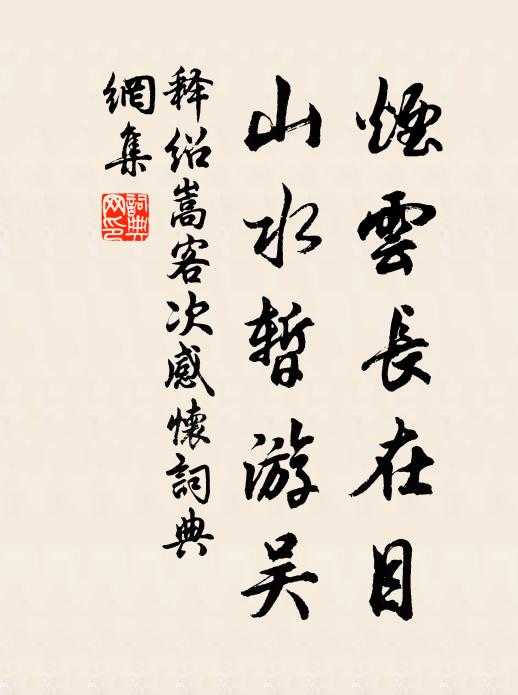 煙雲長在目
山水暫游吴
释绍嵩客次感懷詞典
網集
詞典
网印